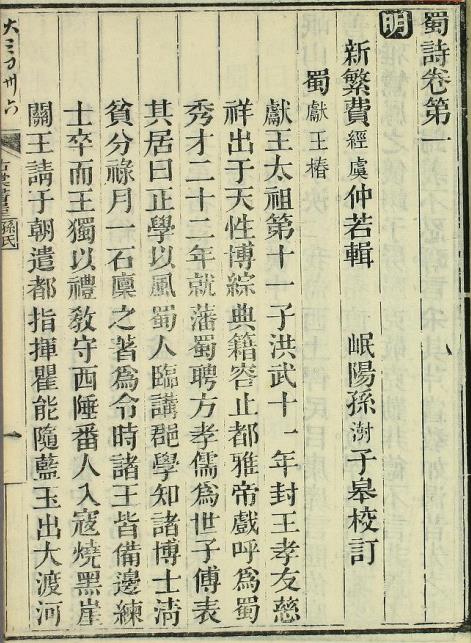 蜀詩卷第一
明
新繁費經虞仲若輯 岷陽孫澍子皋校訂
蜀獻王椿
獻王太祖第十一子洪武十一年封王孝友慈
祥出于天性博綜典籍容止都雅帝戲呼爲蜀
秀才二十二年就藩蜀聘方孝儒爲世子傅表
其居曰正學以風蜀人臨講郡學知諸博士清
貧分祿月一石廩之著爲令時諸王皆備邊練
士卒而王獨以禮敎守西陲番人入寇燒黑崖
關王請于朝遣都指揮瞿能隨藍玉出大渡河
孫氏